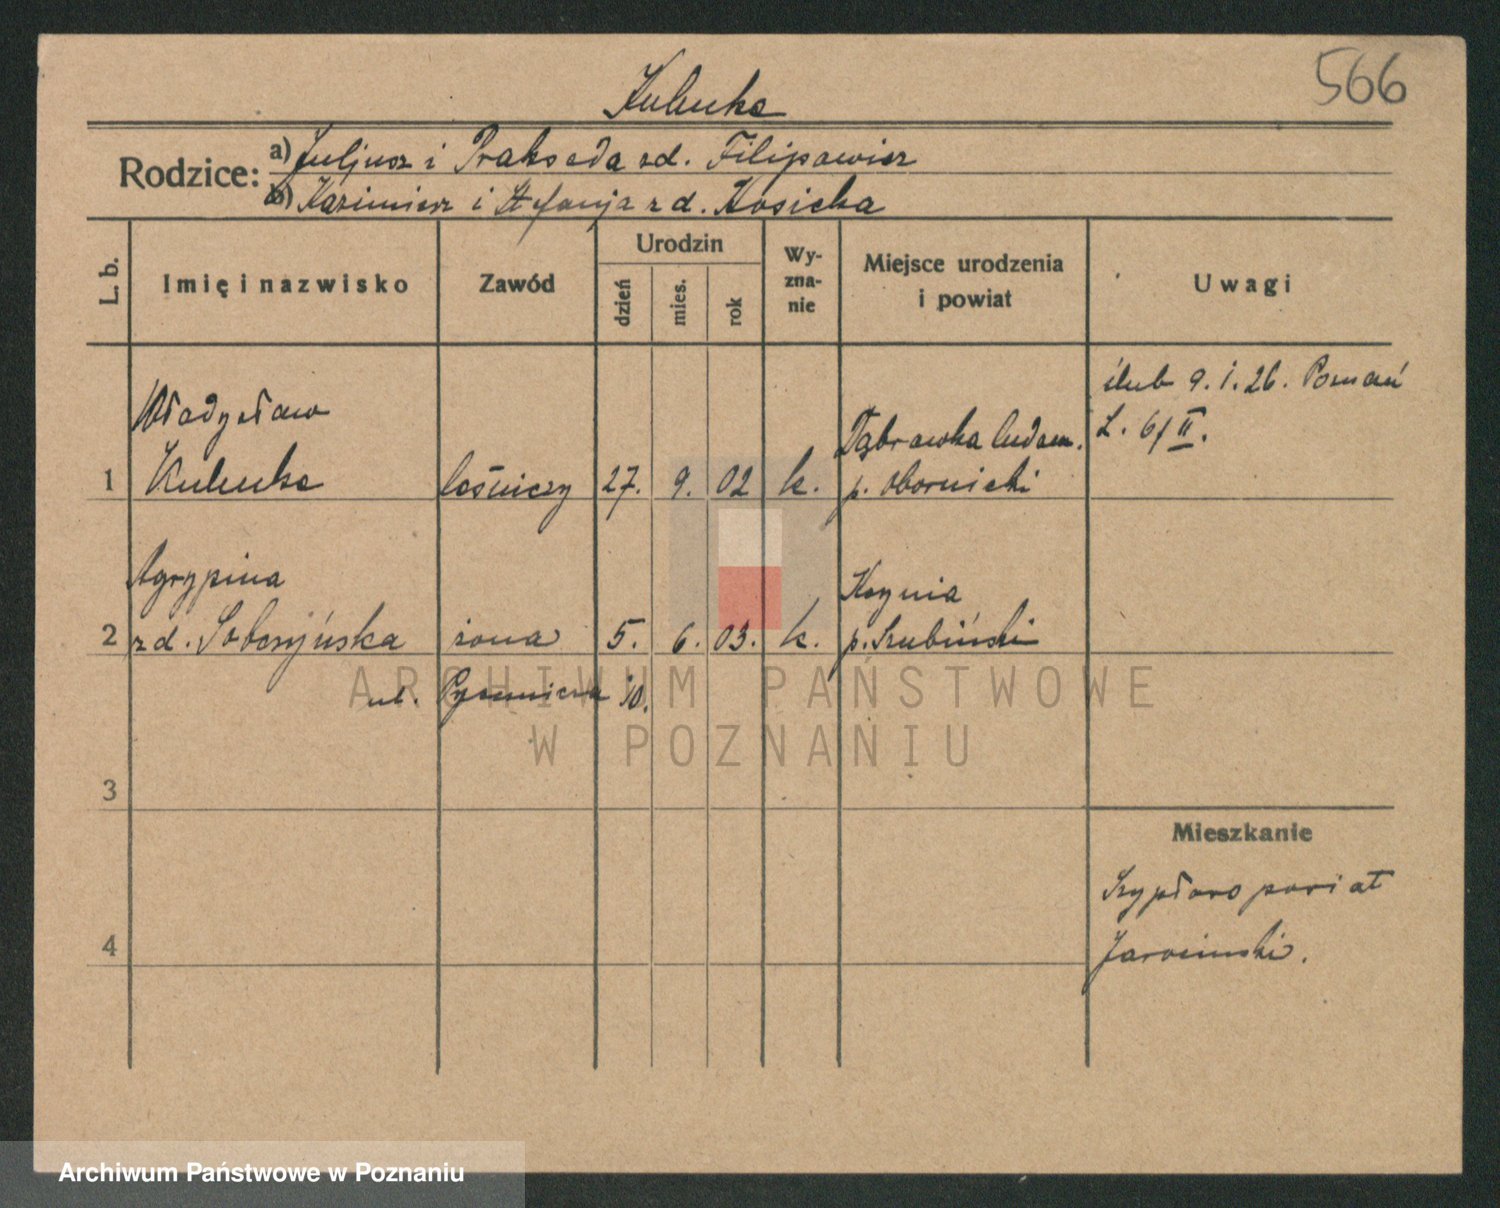 566
Kubuke
Rodzice: a) Juljusz i Prakseda zd. Filipowicz
b) Kazimierz i Stefanja zd. Kosicka
L. b. Imię i nazwisko Zawód Urodzin dzień mies. rok Wy-zna-nie Miejsce urodzenia i powiat Uwagi
ślub 9.1.26. Poznań
L. 6/II.
Władysław
Dąbrówka ludom.
1 leśniczy 27. 9. 02 k. p. obornicki
Agrypina
Kcynia
2 zd. Sobczyńska żona 5. 6. 03. k. p. Szubiński
ul. 10.
ARCHIWUM PAŃSTWOWE
W POZNANIU
3
Mieszkanie
Szypłowo powiat
4 Jarociński.
Archiwum Państwowe w Poznaniu